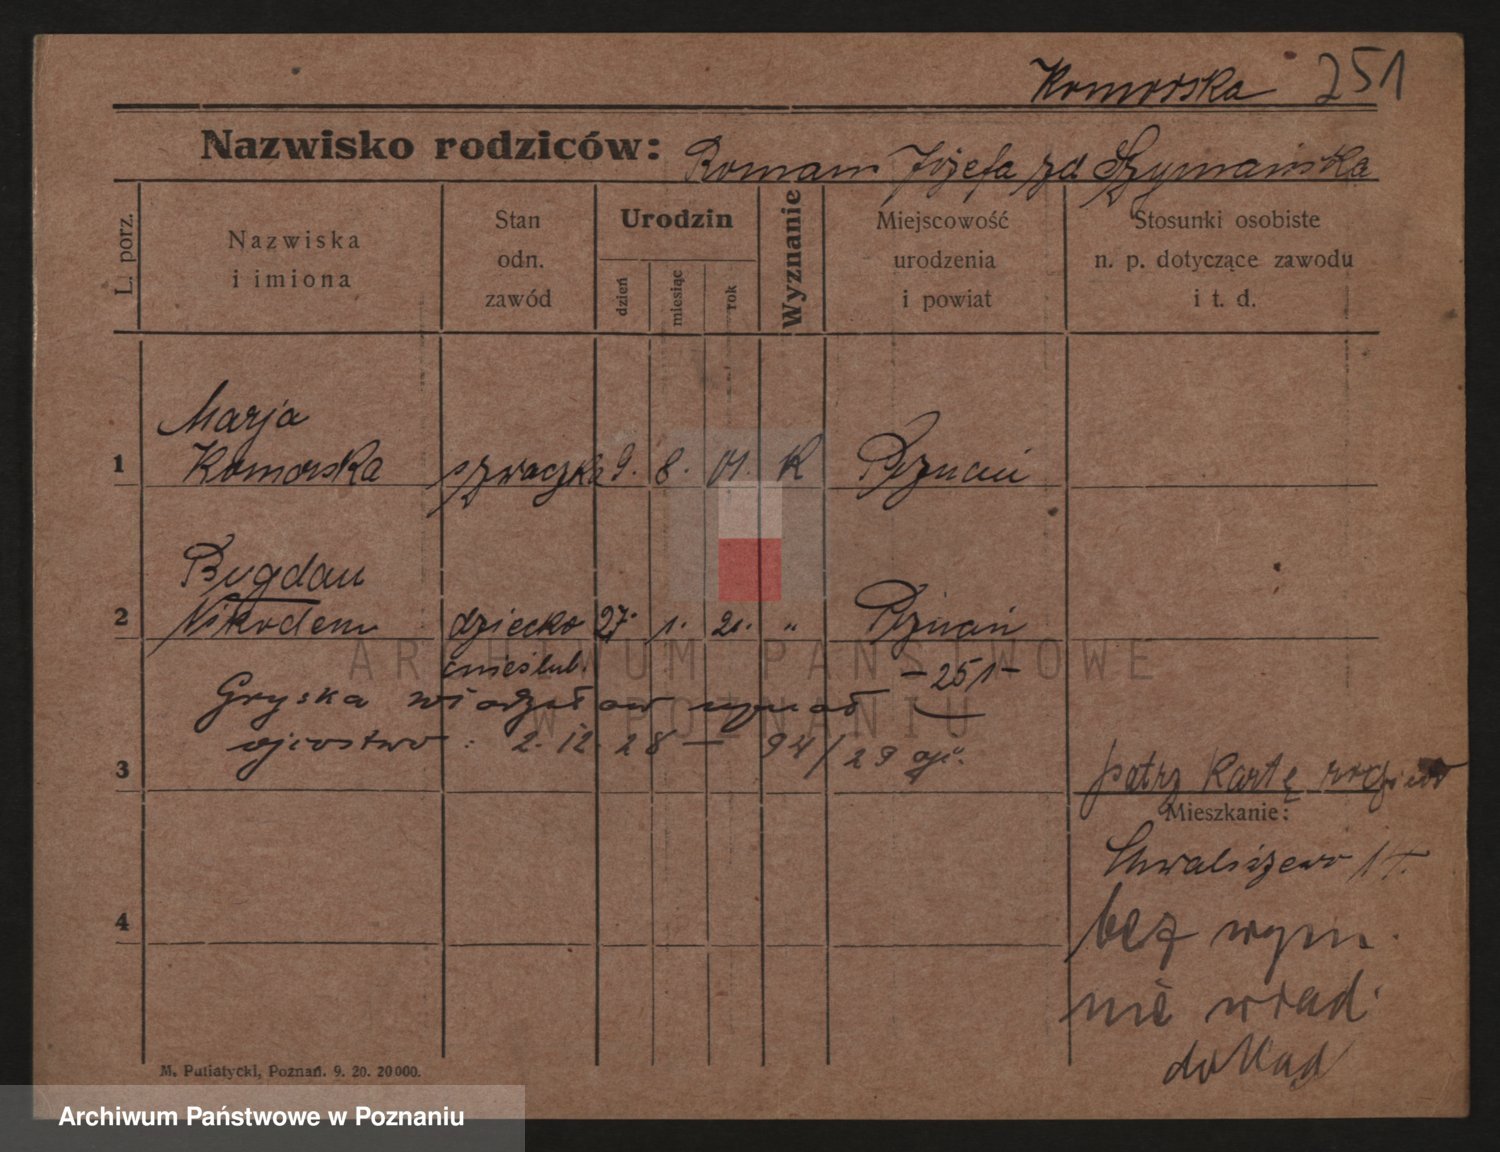 Komorska 251
Nazwisko rodziców: Roman Józefa zd Szymańska
L. porz.
Nazwiska i imiona
Stan odn. zawód
Urodzin
dzień
miesiąc
rok
Wyznanie
Miejscowość urodzenia i powiat
Stosunki osobiste n. p. dotyczące zawodu i t. d.
Marja
1 Komorska szwaczka 9. 8. 01. K Poznań
Bogdan
2 Nikodem dziecko 27. 1. 21. " Poznań
nieślub. -251-
Gryska Władysław uznał
ojcostwo: 2.12.28 — 94/29
3 patrz Kartę rodziców
Mieszkanie:
Chwaliszewo
4 bez wym.
nie wiad.
dokąd
M. Putiatycki, Poznań. 9. 20. 20000.
ARCHIWUM PAŃSTWOWE
W POZNANIU
Archiwum Państwowe w Poznaniu